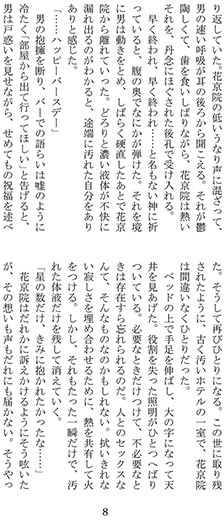 り返していた。花京院の低いうなり声に混ざって、
男の速い呼吸が耳の後ろから聞こえる。それが鬱
陶しくて、歯を食いしばりながら、花京院は熱い
それを、丹念にほぐされた後孔で受け入れる。
早く終われ、早く終われ……と名もない神に祈
っていると、腹の奥でなにかが弾けた。それを境
に男は動きをとめ、しばらく硬直したあとで花京
院から離れていった。どろりと濃い液体が不快に
漏れ出るのがわかると、途端に汚れた自分をあり
ありと感じた。
「……ハッピーバースデー」
男の抱擁を断り、バーでの語らいは嘘のように
冷たく「部屋から出て行ってほしい」と告げると、
男は戸惑いを見せながら、せめてもの祝福を述べ
た。そして再びひとりになる。この世に取り残
されたように、古く汚いホテルの一室で、花京院
は間違いなくひとりだった。
ベッドの上で手足を伸ばし、大の字になって天
井を見あげた。役割を失った照明がひとつへばり
ついている。必要なときだけつけて、不必要なと
きは存在すら忘れられるのだ。人とのセックスな
んて、そんなものなのかもしれない。拭いきれな
い寂しさを埋め合わせるために、熱を共有して火
をつける。しかし、それもたった一瞬だけで、汚
れた体液だけを残して消えていく。
「星の数だけ、きみに抱かれたかったな……」
花京院はだれかに訴えかけるようにそう呟いた
が、その想いも声もだれにも届かない。そうやっ
8